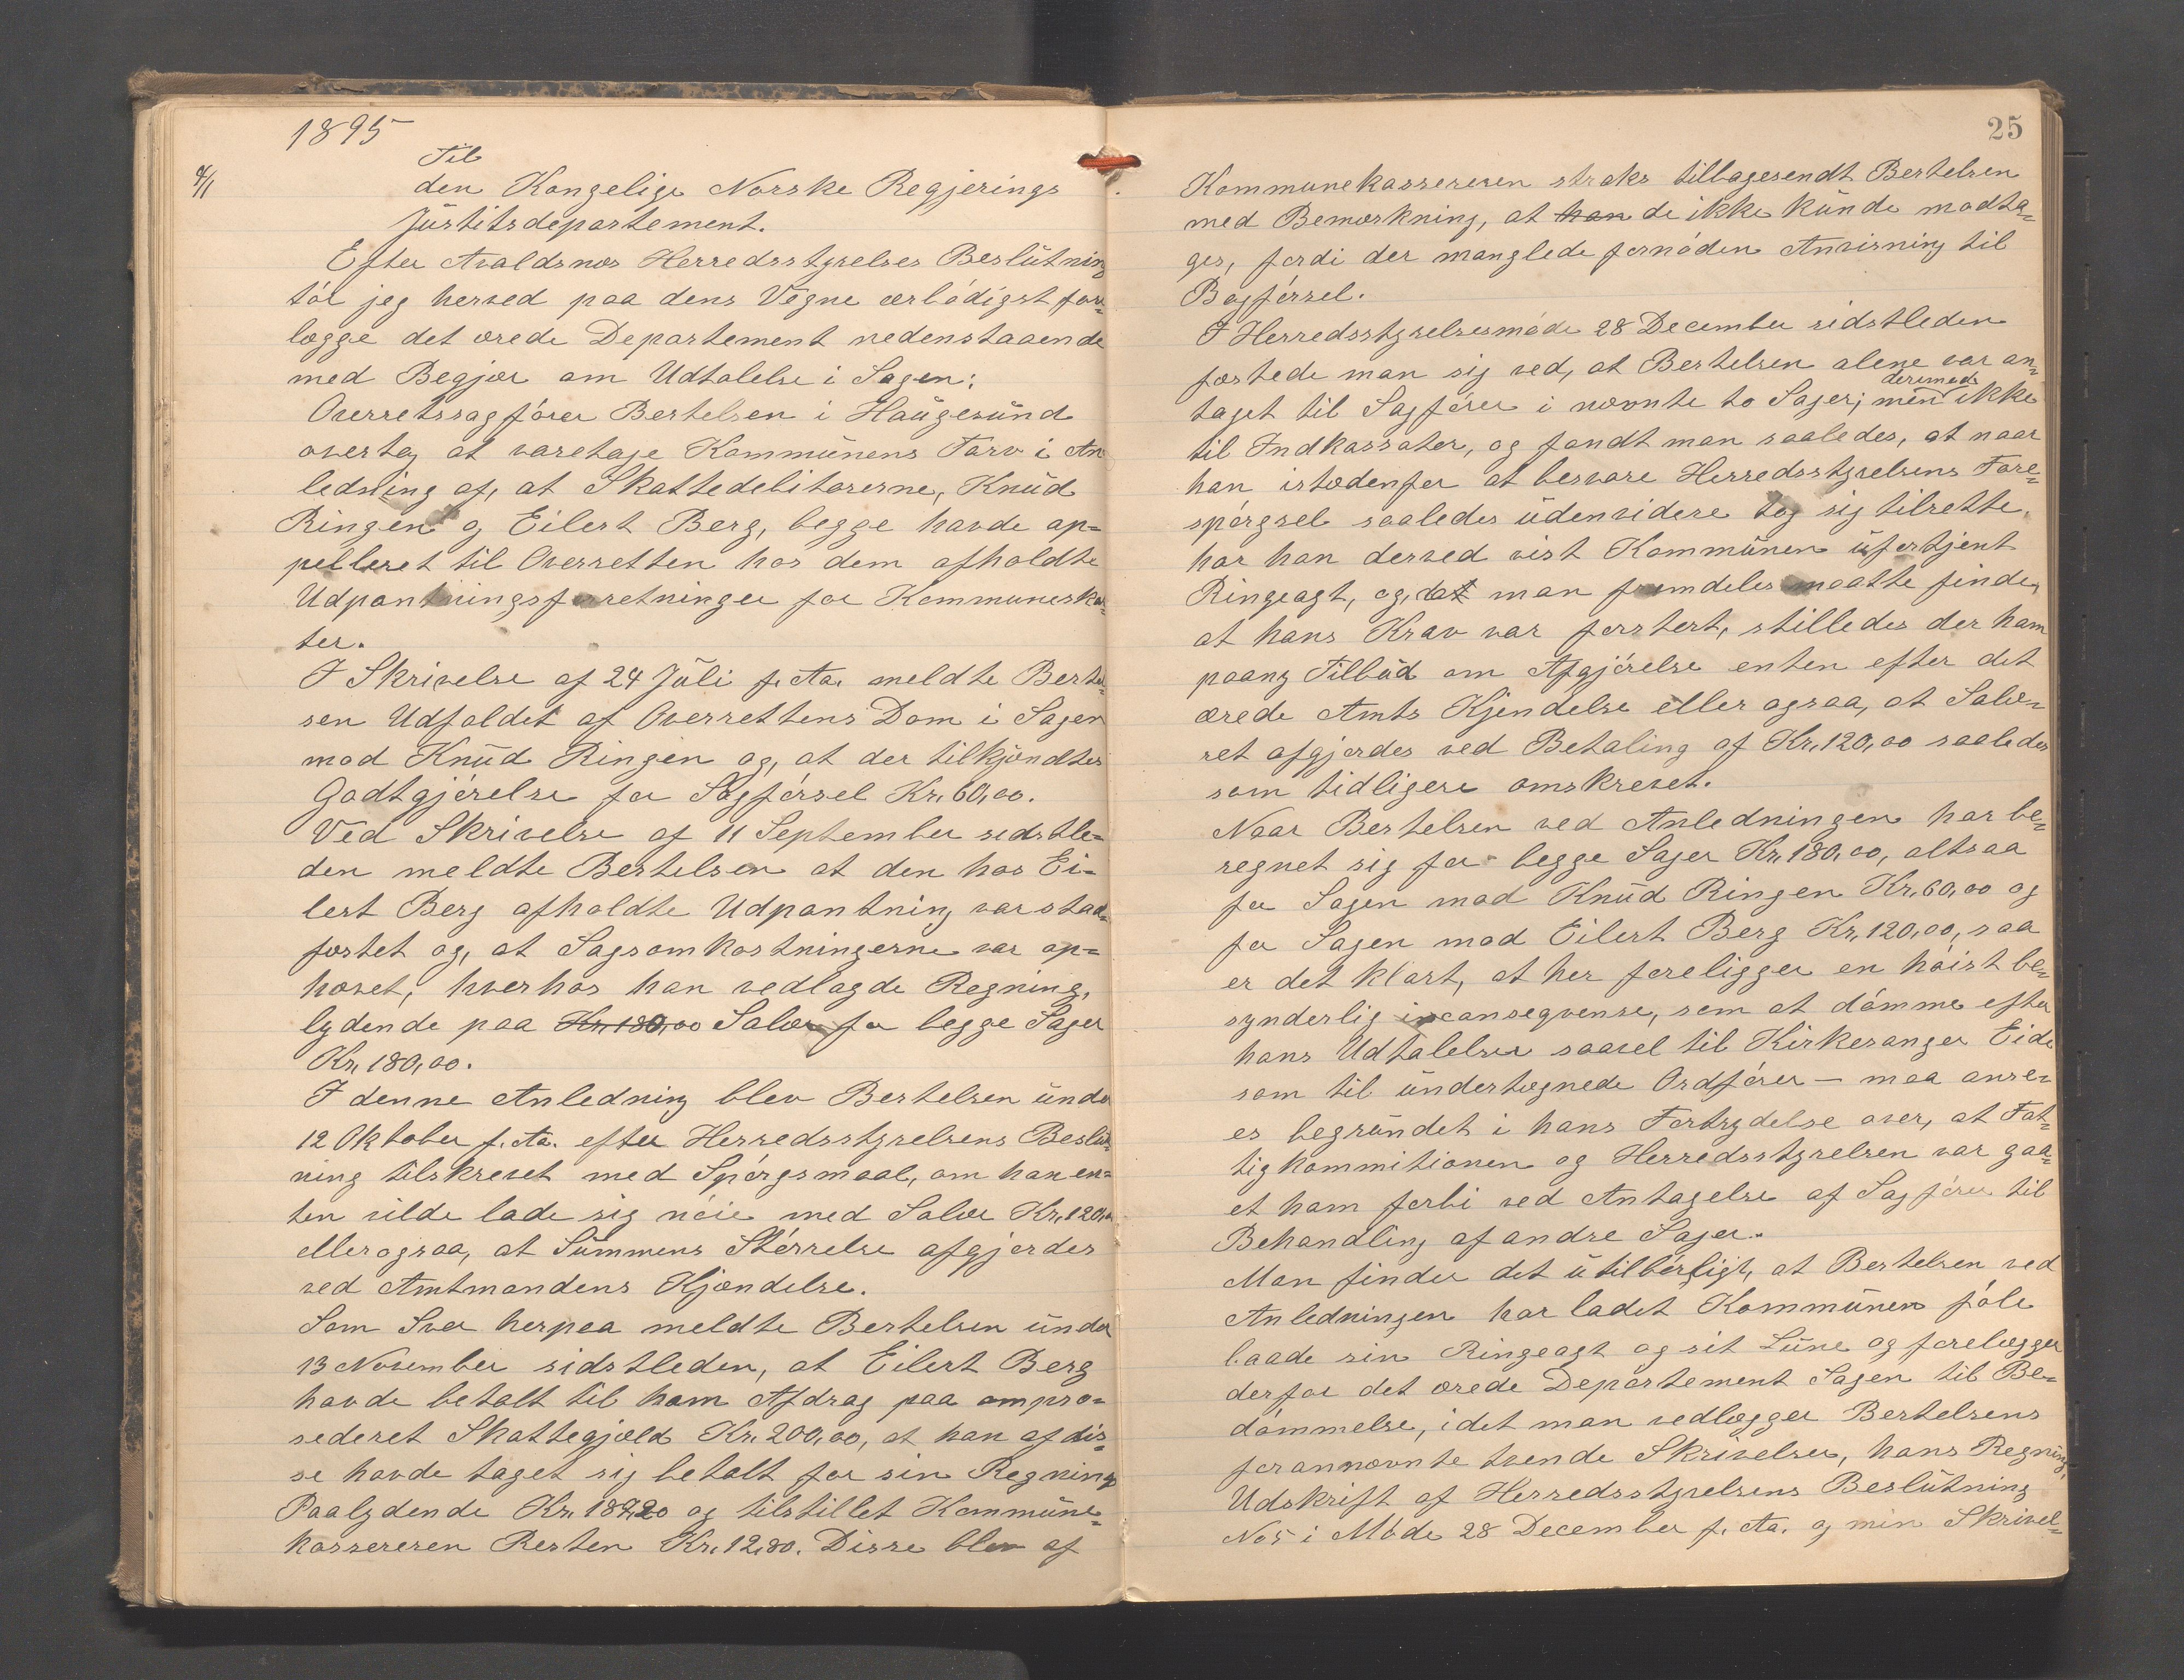 1895
4/1
Til
den Kongelige Norske Regjerings
Justitsdepartement.
Efter Avaldsnæs Herredsstyrelses Beslutning
tør jeg herved paa dens Vegne ærbødigst fore-
lægge det ærede Departement nedenstaaende
med Begjær om Udtalelse i Sagen:
Overretssagfører Bertelsen i Haugesund
overtog at varetage Kommunens Tarv i An
ledning af, at Skattedebitorerne, Knud
Ringen og Eilert Berg, begge havde ap=
pelleret til Overretten hos dem afholdte
Udpantningsforretninger for Kommuneskat-
ter.
I Skrivelse af 24 Juli f. Aa. meldte Bertel-
sen Udfaldet af Overrettens Dom i Sagen
mod Knud Ringen og, at der tilkjendtes
Godtgjørelse for Sagførsel Kr. 60,00.
Ved Skrivelse af 11 September sidstle=
den meldte Bertelsen at den hos Ei=
lert Berg afholdte Udpantning var stad-
fæstet og, at Sagsomkostningerne var op=
hævet, hverhos han vedlagde Regning,
lydende paa Kr. 180,00 Salær for begge Sager
Kr. 180,00.
I denne Anledning blev Bertelsen under
12 Oktober f. Aa. efter Herredsstyrelsens Beslut-
ning tilskrevet med Spørgsmaal, om han en=
ten vilde lade sig nøie med Salær Kr. 120,00
eller ogsaa, at Summens Størrelse afgjordes
ved Amtmandens Kjendelse.
Som Svar herpaa meldte Bertelsen under
13 November sidstleden, at Eilert Berg
havde betalt til ham Afdrag paa ompro=
sederet Skattegjæld Kr. 200,00, at han af dis=
se havde taget sig betalt for sin Regning
Paalydende Kr. 187,20 og tilstillet Kommune=
kassereren Resten Kr. 12,80. Disse blev af
25
Kommunekassereren straks tilbagesendt Bertelsen
med Bemærkning, at han de ikke kunde modta=
ges, fordi der manglede fornøden Anvisning til
Bogførsel.
I Herredsstyrelsesmøde 28 December sidstleden
fæstede man sig ved, at Bertelsen alene var an=
dermeds
taget til Sagfører i nævnte to Sager; men ikke
til Indkassator, og fandt man saaledes, at naar
han istedenfor at besvare Herredsstyrelsens Fore=
spørgsel saaledes udenvidere tog sig tilrette,
har han derved vist Kommunen ufortjent
Ringeagt, og, at man fremdeles maatte finde,
at hans Krav var forstort, stilledes der ham
paany Tilbud om Afgjørelse enten efter det
ærede Amts Kjendelse eller ogsaa, at Salæ=
ret afgjordes ved Betaling af Kr. 120,00 saaledes
som tidligere omskrevet.
Naar Bertelsen ved Anledningen har be=
regnet sig for begge Sager Kr. 180,00, altsaa
for Sagen mod Knud Ringen Kr. 60,00 og
for Sagen mod Eilert Berg Kr. 120,00, saa
er det klart, at her foreligger en høist be=
synderlig inconseqvense, som at dømme efter
hans Udtalelser saavel til Kirkesanger Eide
som til undertegnede Ordfører — maa anse=
es begrundet i hans Fortrydelse over, at Fat=
tigkommitionen og Herredsstyrelsen var gaa=
et ham forbi ved Antagelse af Sagfører til
Behandling af andre Sager.
Man finder det utilbørligt, at Bertelsen ved
Anledningen har ladet Kommunen føle
baade sin Ringeagt og sit Lune og forelægger
derfor det ærede Departement Sagen til Be=
dømmelse, idet man vedlægger Bertelsens
forannævnte tvende Skrivelser, hans Regning,
Udskrift af Herredsstyrelsens Beslutning
No 5 i Møde 28 December f. Aa. og min Skrivel=